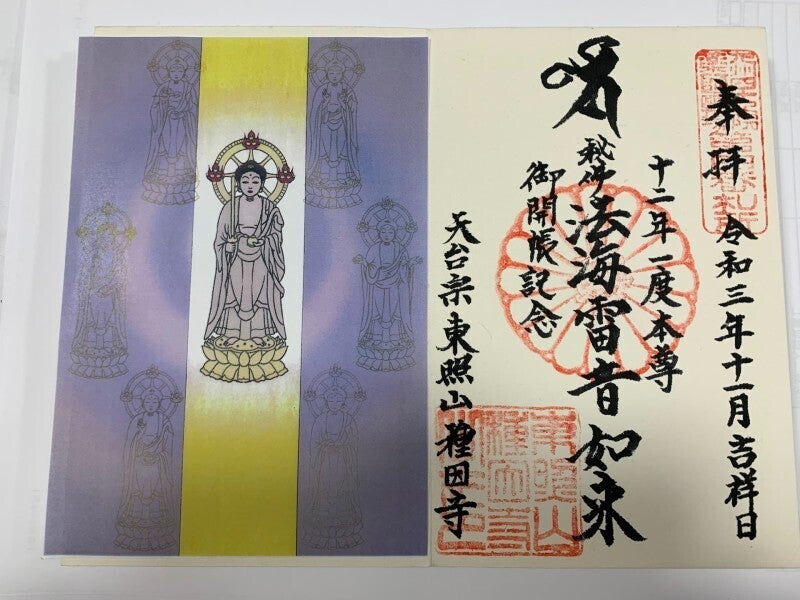 奉拝
令和三年十一月吉祥日
十二年一度本尊
秘仏
法海雷音如来
御開帳記念
天台宗東照山種因寺